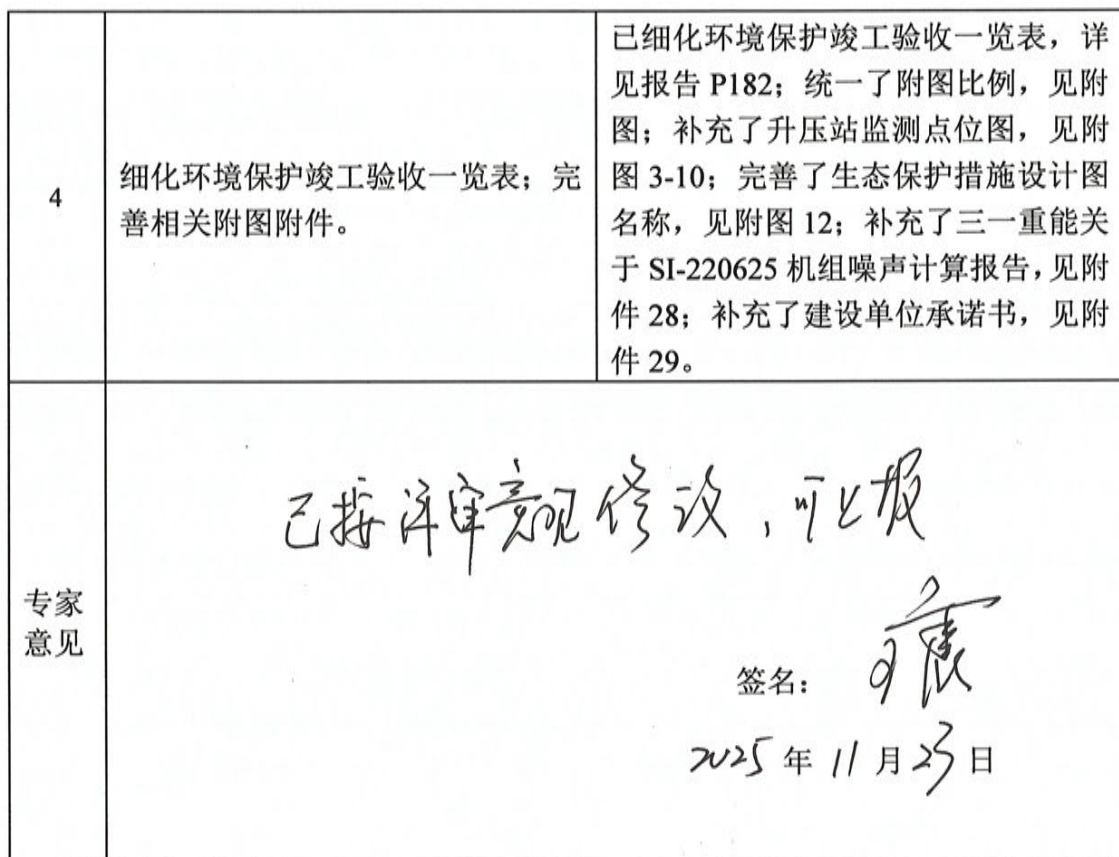 4
细化环境保护竣工验收一览表；完
善相关附图附件。
已细化环境保护竣工验收一览表，详
见报告 P182；统一了附图比例，见附
图；补充了升压站监测点位图，见附
图 3-10；完善了生态保护措施设计图
名称，见附图 12；补充了三一重能关
于 SI-220625 机组噪声计算报告，见附
件 28；补充了建设单位承诺书，见附
件 29。
专家
意见
已按评审意见修改，可上报
签名：
2025 年 11 月 23 日